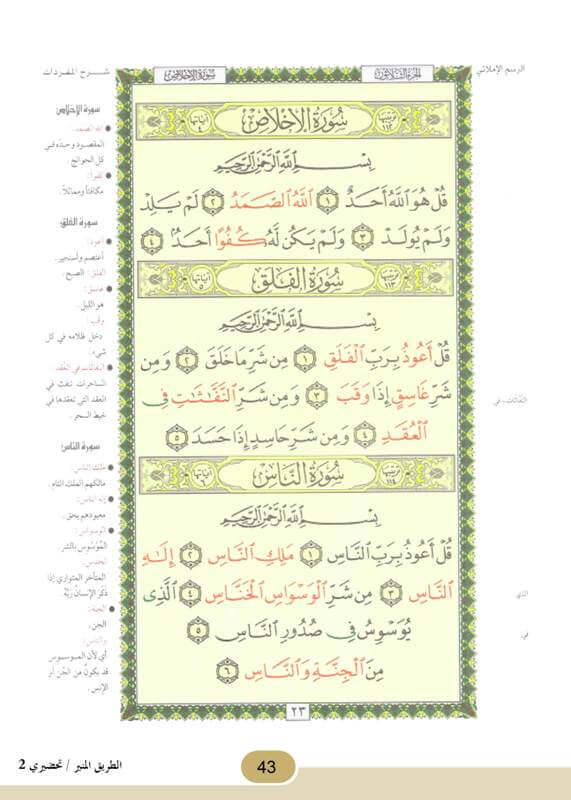 الرسم الإملائي
الجزء الثلاثون
سورة الإخلاص
شرح المفردات
ترتيبها ١١٢ سُورَةُ الإِخْلَاصِ آياتها ٤
بِسْمِ اللَّهِ الرَّحْمَٰنِ الرَّحِيمِ
قُلْ هُوَ اللَّهُ أَحَدٌ ١ اللَّهُ الصَّمَدُ ٢ لَمْ يَلِدْ
وَلَمْ يُولَدْ ٣ وَلَمْ يَكُن لَّهُ كُفُوًا أَحَدٌ ٤
ترتيبها ١١٣ سُورَةُ الْفَلَقِ آياتها ٥
بِسْمِ اللَّهِ الرَّحْمَٰنِ الرَّحِيمِ
قُلْ أَعُوذُ بِرَبِّ الْفَلَقِ ١ مِن شَرِّ مَا خَلَقَ ٢ وَمِن
شَرِّ غَاسِقٍ إِذَا وَقَبَ ٣ وَمِن شَرِّ النَّفَّٰثَٰتِ فِى
الْعُقَدِ ٤ وَمِن شَرِّ حَاسِدٍ إِذَا حَسَدَ ٥
ترتيبها ١١٤ سُورَةُ النَّاسِ آياتها ٦
بِسْمِ اللَّهِ الرَّحْمَٰنِ الرَّحِيمِ
قُلْ أَعُوذُ بِرَبِّ النَّاسِ ١ مَلِكِ النَّاسِ ٢ إِلَٰهِ
النَّاسِ ٣ مِن شَرِّ الْوَسْوَاسِ الْخَنَّاسِ ٤ الَّذِى
يُوَسْوِسُ فِى صُدُورِ النَّاسِ ٥
مِنَ الْجِنَّةِ وَالنَّاسِ ٦
٢٣
النَّفَّاثَات . في
الذي
في
سورة الإخلاص
الله الصمد:
المقصود وحده في
كل الحوائج.
كفوا:
مكافئاً ومماثلاً.
سورة الفلق
أعوذ:
أعتصم وأستجير.
الفلق: الصبح.
غاسق:
هو الليل.
وقب
دخل ظلامه في كل
شيء.
النفاثات في العقد:
الساحرات تنفث في
العقد التي تعقدها في
خيط السحر.
سورة الناس
ملك الناس:
مالكهم الملك التام.
إله الناس:
معبودهم بحق.
الوسواس:
المُوَسْوِس بالشر.
الخناس:
المتأخر المتواري إذا
ذكر الإنسان ربَّه.
الجنة:
الجن.
والناس:
أي لأن الموسوس
قد يكون من الجن أو
الإنس.
43
الطريق المنير / تحضيري 2